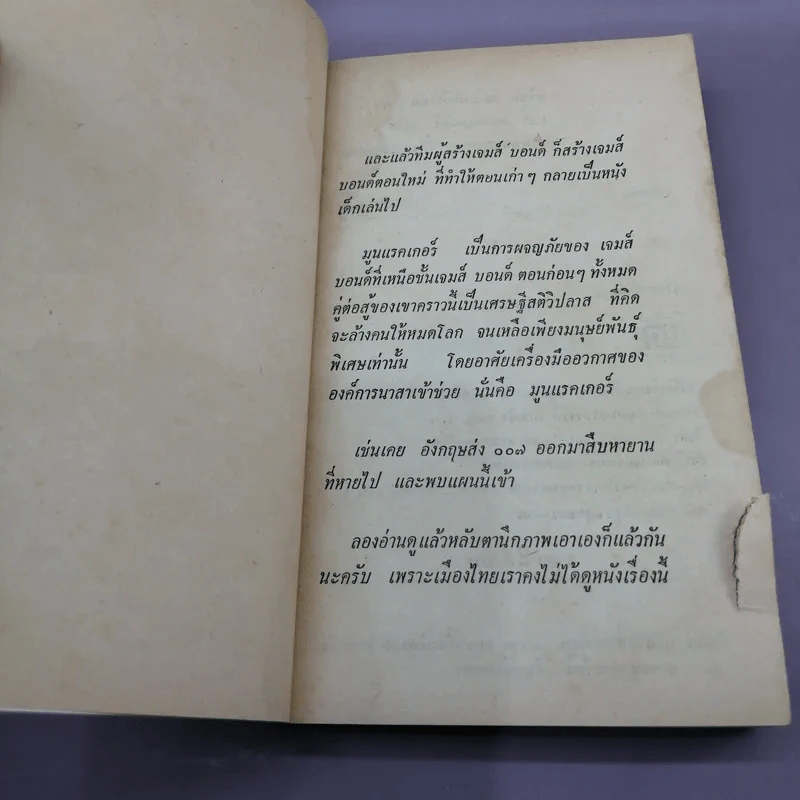 และแล้วทีมผู้สร้างเจมส์ บอนด์ ก็สร้างเจมส์
บอนด์ตอนใหม่ ที่ทำให้ตอนเก่า ๆ กลายเป็นหนัง
เด็กเล่นไป
มูนแรคเกอร์ เป็นการผจญภัยของ เจมส์
บอนด์ที่เหนือชั้นเจมส์ บอนด์ ตอนก่อนๆ ทั้งหมด
คู่ต่อสู้ของเขาคราวนี้เป็นเศรษฐีสติวิปลาส ที่คิด
จะล้างคนให้หมดโลก จนเหลือเพียงมนุษย์พันธุ์
พิเศษเท่านั้น โดยอาศัยเครื่องมืออวกาศของ
องค์การนาสาเข้าช่วย นั่นคือ มูนแรคเกอร์
เช่นเคย อังกฤษส่ง ๐๐๗ ออกมาสืบหายาน
ที่หายไป และพบแผนนี้เข้า
ลองอ่านดูแล้วหลับตานึกภาพเอาเองก็แล้วกัน
นะครับ เพราะเมืองไทยเราคงไม่ได้ดูหนังเรื่องนี้